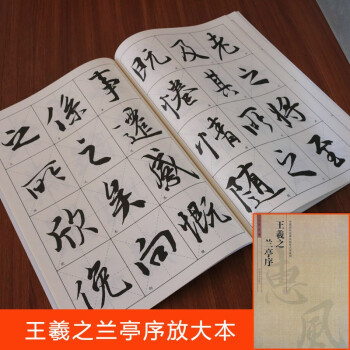 老之将至
及其所之
既惓情随
事遷感慨
係之矣向
之所欣俛
王羲之
兰亭序
惠風
王羲之兰亭序放大本